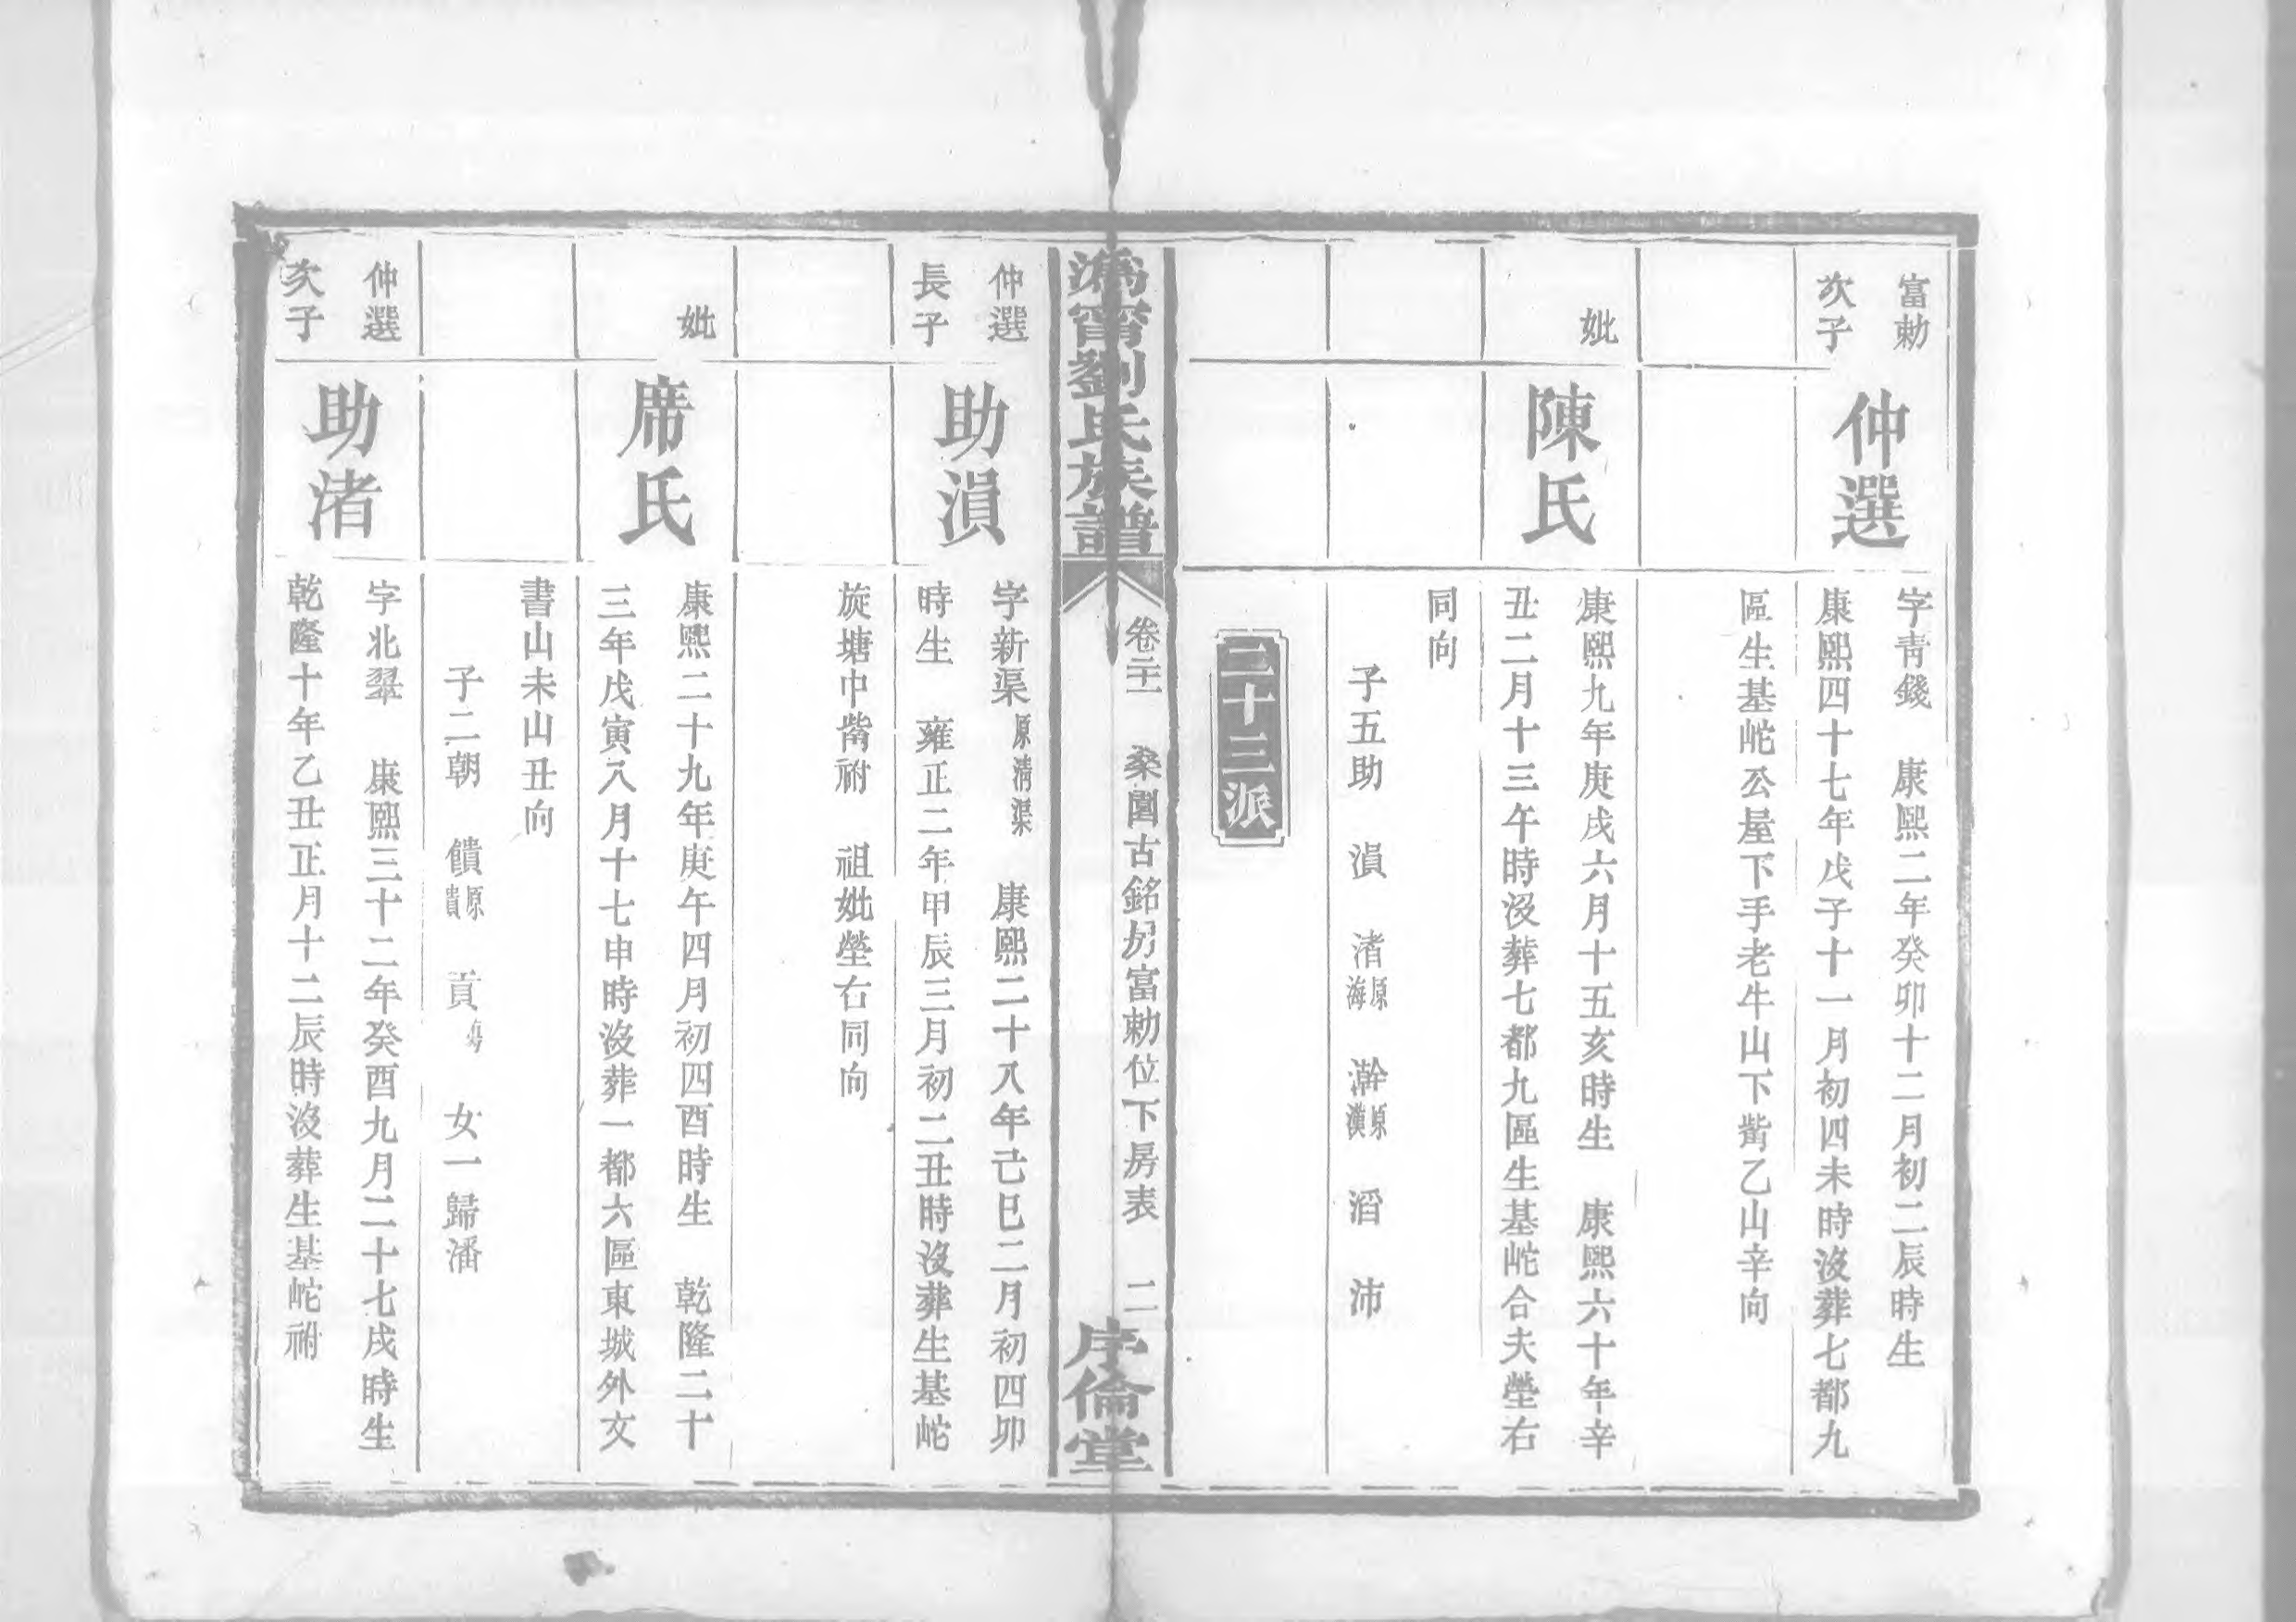 富勅
次子
仲選
字青錢 康熙二年癸卯十二月初二辰時生
康熙四十七年戊子十一月初四未時沒葬七都九
區生基岮公屋下手老牛山下嵴乙山辛向
妣
陳氏
康熙九年庚戌六月十五亥時生 康熙六十年辛
丑二月十三午時沒葬七都九區生基岮合夫塋右
同向
子五助 溳 渚原海 澣原漢 滔 沛
二十三派
溈甯劉氏族譜
卷二十一 桑園古銘房富勅位下房表 二
序倫堂
仲選
長子
助溳
字新渠原清渠 康熙二十八年己巳二月初四卯
時生 雍正二年甲辰三月初二丑時沒葬生基岮
旋塘中嵴祔 祖妣塋右同向
妣
席氏
康熙二十九年庚午四月初四酉時生 乾隆二十
三年戊寅八月十七申時沒葬一都六區東城外文
書山未山丑向
子二朝 饋原貴 貢 女一歸潘
仲選
次子
助渚
字北翠 康熙三十二年癸酉九月二十七戌時生
乾隆十年乙丑正月十二辰時沒葬生基岮祔